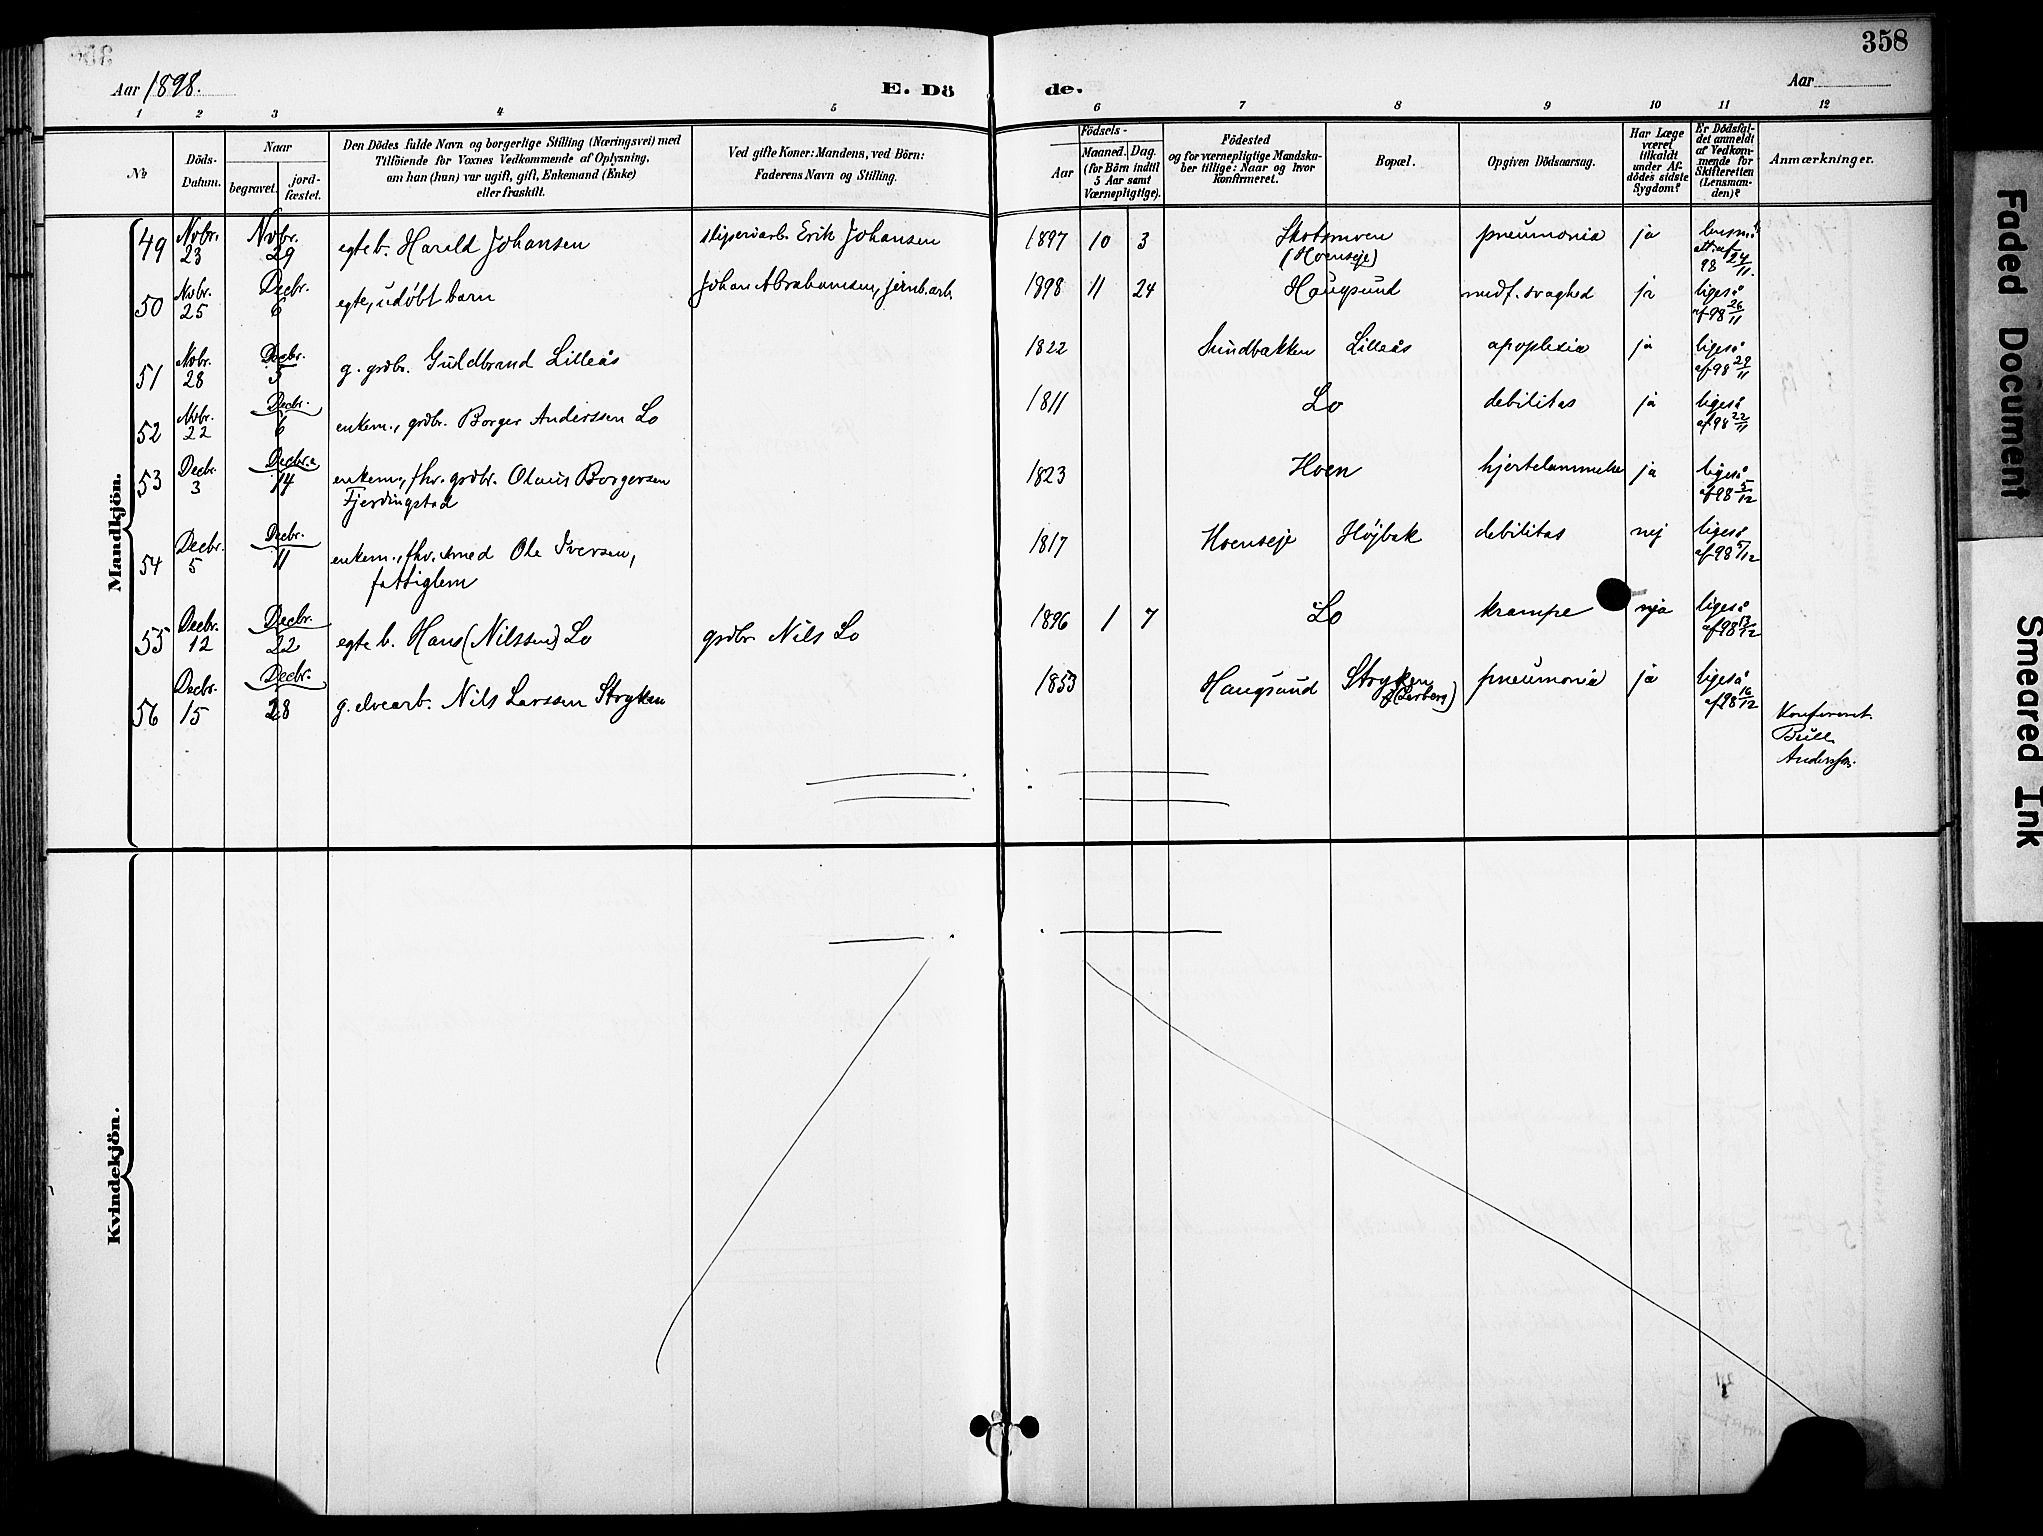 358
Aar 1898.
E. Dö de.
Aar
1 2 3 4 5 6 7 8 9 10 11 12
No
Döds-
Datum.
Naar
begravet.
jord-
fæstet.
Den Dödes fulde Navn og borgerlige Stilling (Næringsvei) med
Tilföiende for Voxnes Vedkommende af Oplysning,
om han (hun) var ugift, gift, Enkemand (Enke)
eller fraskilt.
Ved gifte Koner: Mandens, ved Börn:
Faderens Navn og Stilling.
Födsels-
Aar
Maaned. Dag.
(for Börn indtil
5 Aar samt
Værnepligtige).
Födested
og for værnepligtige Mandska-
ber tillige: Naar og hvor
konfirmeret.
Bopæl.
Opgiven Dödsaarsag.
Har Læge
været
tilkaldt
under Af-
dödes sidste
Sygdom?
Er Dödsfal-
det anmeldt
af Vedkom-
mende for
Skifteretten
(Lensman-
den)?
Anmærkninger.
Mandkjön.
49 Nvbr. 23 Nvbr. 29 egte b. Harald Johansen sliperiarb. Erik Johansen 1897 10 3 Skotsmoen (Hoenseje) pneumonia ja lensm.s att. af 98 24/11.
50 Nvbr. 25 Decbr. 6 egte, udøbt barn Johan Abrahamsen, jernb.arb. 1898 11 24 Haugsund medf. svaghed ja ligeså af 98 26/11
51 Nvbr. 28 Decbr. 5 g. grdbr. Guldbrand Lilleås 1822 Sundbakken Lilleås apoplexia ja ligeså af 98 29/11
52 Nvbr. 22 Decbr. 6 enkem., grdbr. Borger Anderssen Lo 1811 Lo debilitas ja ligeså af 98 22/11
53 Decbr. 3 Decbr. 14 enkem., fhv. grdbr. Olaus Borgersen
Fjerdingstad 1823 Hoen hjertelammelse ja ligeså af 98 5/12
54 Decbr. 5 Decbr. 11 enkem., fhv. smed Ole Iversen,
fattiglem 1817 Hoenseje Højbak debilitas nej ligeså af 98 5/12
55 Decbr. 12 Decbr. 22 egte b. Hans (Nilssen) Lo grdbr. Nils Lo 1896 1 7 Lo krampe ligeså af 98 13/12
56 Decbr. 15 Decbr. 28 g. elvearb. Nils Larssen Stryken 1853 Haugsund Stryken pneumonia ja ligeså af 98 16/12
Konfereret.
Anderssen.
Kvindekjön.
Faded Document
Smeared Ink